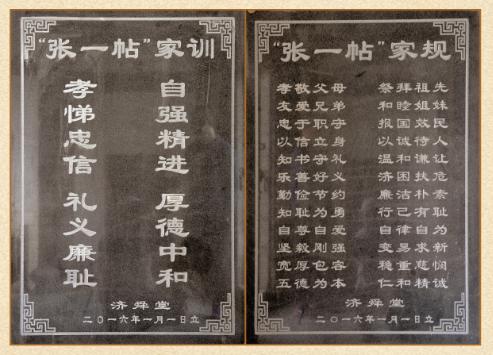 “张一帖”家训
孝悌忠信 礼义廉耻
自强精进 厚德中和
济舜堂
二〇一六年一月一日立
“张一帖”家规
孝敬父母 祭拜祖先
友爱兄弟 和睦姐妹
忠于职守 报国效民
以信立身 以诚待人
知书守礼 温和谦让
乐善好义 济困扶危
勤俭节约 廉洁朴素
知耻为勇 行己有耻
自尊自爱 自律自为
坚毅刚强 变易求新
宽厚包容 稳重慈悯
五德为本 仁和精诚
济舜堂
二〇一六年一月一日立